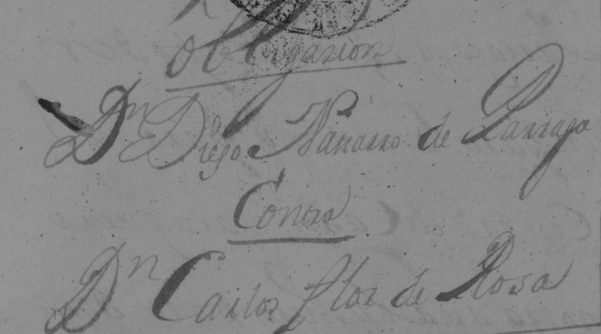 obligacion
Dn Diego Nauarro de Parraga
Contra
Dn Carlos flor de Rosa